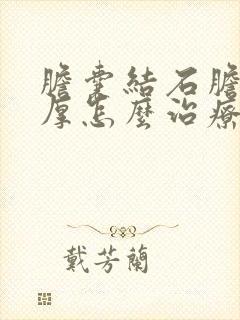 膽囊結石膽
厚怎麼治療
戴芳蘭